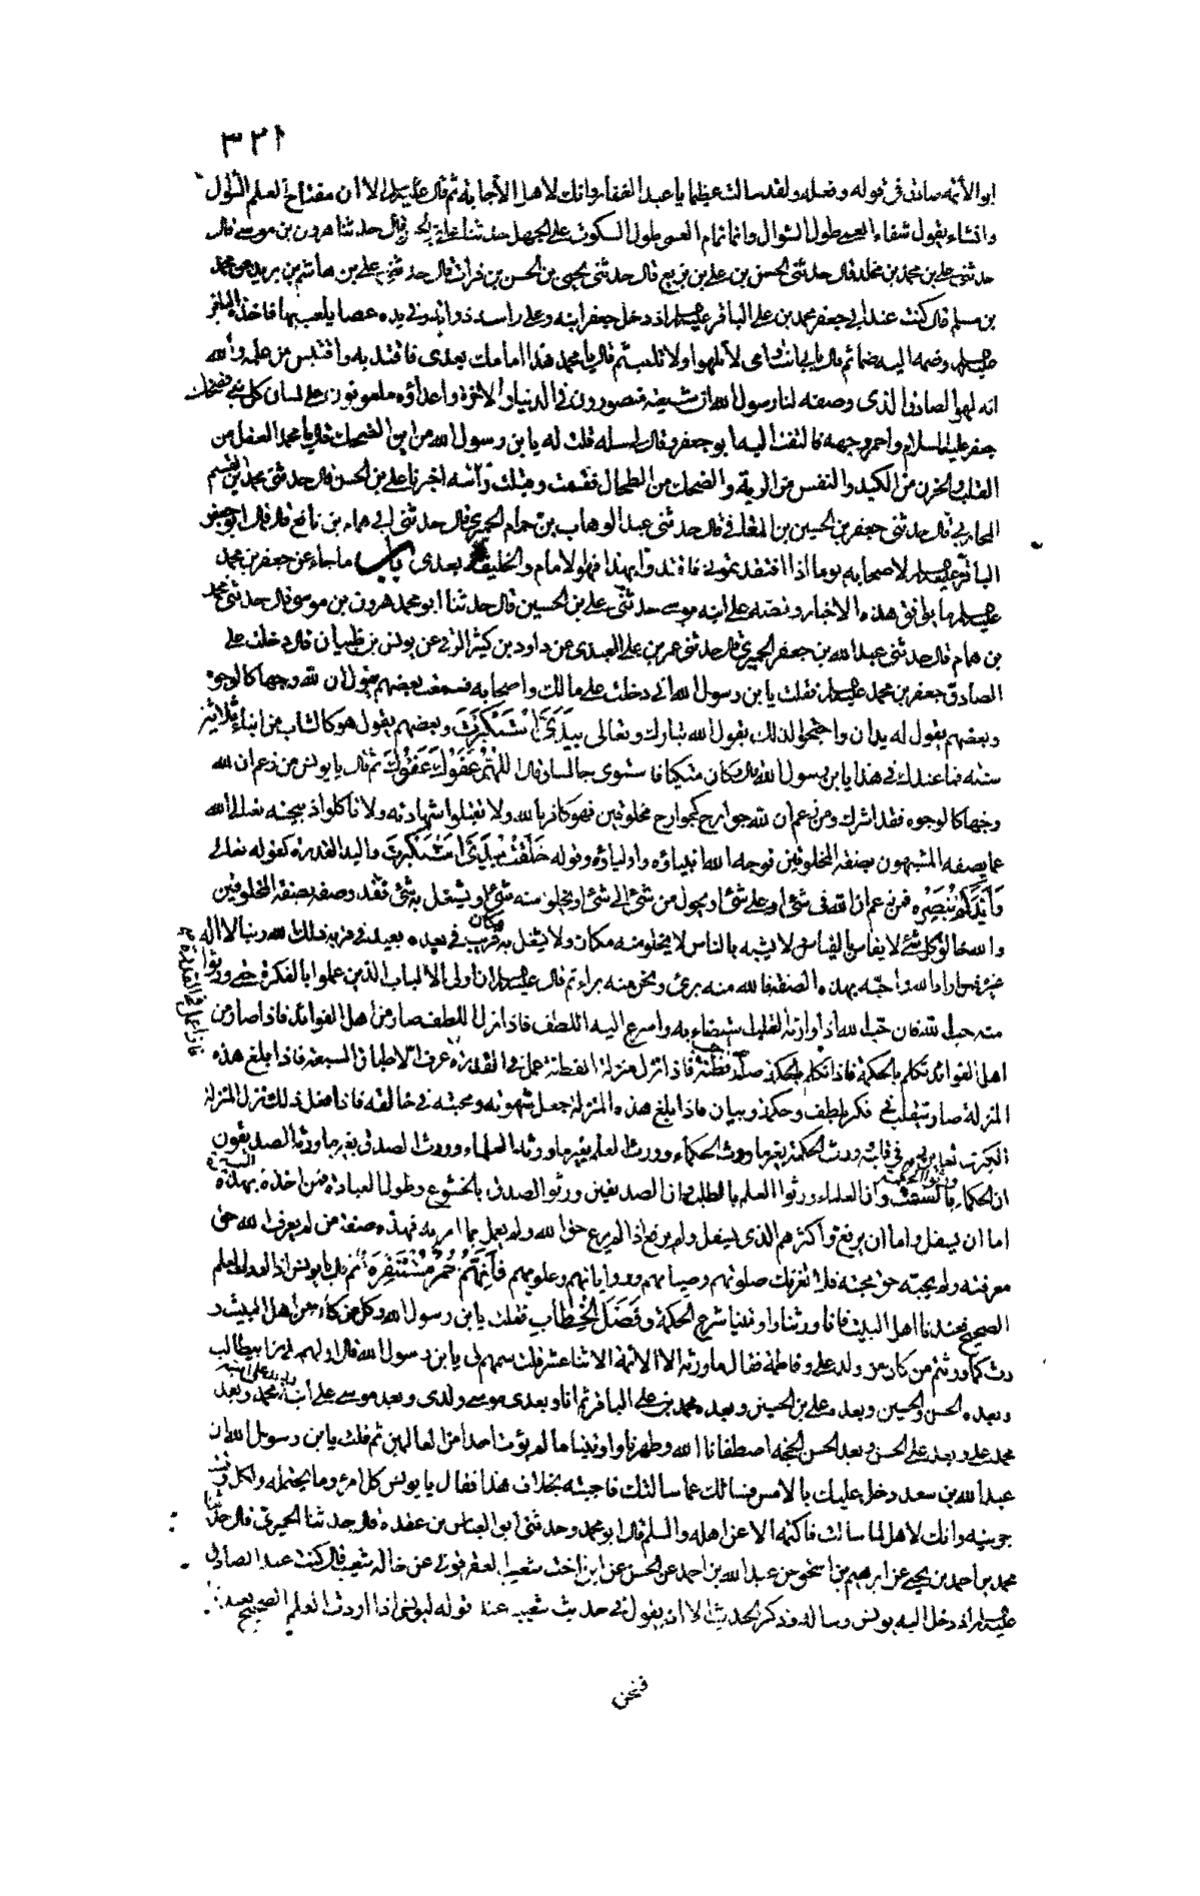 ٣٢١
ابو الأئمة صادق في قوله وفعله ولقد سالت عظيما يا عبد الغفار وانك لأهل الأجابة ثم قال عليه السلام الا ان مفتاح العلم السؤال
وانشاء يقول شفاء العمى طول السؤال وانما تمام العمى طول السكوت على الجهل حدثنا علي بن قال حدثنا هرون بن موسى قال
حدثني علي بن محمد بن مخلد قال حدثني الحسن بن علي بن بزيع قال حدثني يحيى بن الحسن بن فرات قال حدثني علي بن هاشم بن بريد عن محمد
بن مسلم قال كنت عند ابي جعفر محمد بن علي الباقر عليه السلام اذ دخل جعفر ابنه وعلى راسه ذوابة وفي يده عصا يلعب بها فاخذه الباقر
عليه السلام وضمه اليه ضما ثم قال بابي انت وامي لا تلهو ولا تلعب ثم قال يا محمد هذا امامك بعدي فاقتد به واقتبس من علمه والله
انه لهو الصادق الذي وصفه لنا رسول الله ان شيعته منصورون في الدنيا والاخرة واعداؤه ملعونون على لسان كل نبي فضحك
جعفر عليه السلام واحمر وجهه فالتفت اليه ابو جعفر وقال لي سله قلت له يابن رسول الله من اين الضحك قال يا محمد العقل من
القلب والحزن من الكبد والنفس من الرية والضحك من الطحال فقمت وقبلت رأسه اخبرنا علي بن الحسن قال حدثني محمد بن القسم
المحاربي قال حدثني جعفر بن الحسين بن قال حدثني عبد الوهاب بن همام الحميري قال حدثني ابي همام بن نافع قال قال ابو جعفر
الباقر عليه السلام لاصحابه يوما اذا افتقدتموني فاقتدوا بهذا فهو الامام والخليفة بعدي باب ما جاء عن جعفر بن محمد
عليه السلام ما يوافق هذه الاخبار ونصه على ابنه موسى حدثني علي بن الحسين قال حدثنا ابو محمد هرون بن موسى قال حدثني محمد
بن همام قال حدثني عبد الله بن جعفر الحميري قال حدثني عمر بن علي العبدي عن داود بن كثير الرقي عن يونس بن ظبيان قال دخلت على
الصادق جعفر بن محمد عليه السلام فقلت يا بن رسول الله اني دخلت على مالك واصحابه فسمعت بعضهم يقول ان لله وجها كالوجوه
وبعضهم يقول له يدان واحتجوا لذلك بقول الله تبارك وتعالى بيدي استكبرت وبعضهم يقول هو كالشاب من ابناء ثلاثين
سنه فما عندك في هذا يابن رسول الله قال وكان متكئا فاستوى جالسا وقال اللهم عفوك عفوك ثم قال يا يونس من زعم ان لله
وجها كالوجوه فقد اشرك ومن زعم ان لله جوارح كجوارح مخلوقين فهو كافر بالله ولا تقبلوا شهادته ولا تاكلوا ذبيحته تعالى الله
عما يصفه المشبهون بصفة المخلوقين فوجه الله انبياؤه واولياؤه وقوله خلقت بيدي استكبرت واليد القدرة كقوله تعالى
وايدكم بنصره فمن زعم ان الله في شئ او على شئ او يحول من شئ الى شئ او يخلو منه شئ او يشتغل به شئ فقد وصفه بصفة المخلوقين
والله خالق كل شئ لا يقاس بالقياس لا يشبه بالناس لا يخلو منه مكان ولا يشغل به مكان قريب في بعده بعيد في قربه ذلك الله ربنا لا اله
غيره فمن اراد الله واحبه بهذه الصفة فالله منه برئ ونحن منه براء ثم قال عليه السلام ان اولي الالباب الذين عملوا بالفكرة حتى ورثوا
منه حب الله فان حب الله اذا ورثه القلب استضاء به واسرع اليه اللطف فاذا نزل اللطف صار من اهل الفوائد فاذا صار من
اهل الفوائد تكلم بالحكمة فاذا تكلم بالحكمة صار صاحب فطنة فاذا نزل منزلة الفطنة عمل في القدرة عرف الاطباق السبعة فاذا بلغ هذه
فاذا عمل في القدرة
المنزلة صار يتقلب في فكر بلطف وحكمة وبيان فاذا بلغ هذه المنزلة جعل شهوته ومحبته في خالقه فاذا فعل ذلك نزل المنزلة
الكبرى فعاين ربه في قلبه وورث الحكمة بغير ما ورث الحكماء وورث العلم بغير ما ورثه العلماء وورث الصدق بغير ما ورثه الصديقون
ان الحكماء ورثوا الحكمة بالصمت وان العلماء ورثوا العلم بالطلب وان الصديقين ورثوا الصدق بالخشوع وطول العبادة فمن اخذه بهذه السيرة
اما ان يسفل واما ان يرفع واكثرهم الذي يسفل ولم يرفع اذا لم يرع حق الله ولم يعمل بما امر به فهذه صفة من لم يعرف الله حق
معرفته ولم يحبه حق محبته فلا تغرنك صلوتهم وصيامهم وروايانهم وعلومهم فانهم حمر مستنفرة ثم قال يا يونس اذا اردت العلم
الصحيح فعندنا اهل البيت فانا ورثنا واوتينا شرع الحكمة وفصل الخطاب فقلت يابن رسول الله وكل من كان من اهل البيت
ورث كما ورثتم من كان من ولد علي وفاطمة فقال ما ورثه الا الائمة الاثنا عشر قلت سمهم لي يا بن رسول الله قال اولهم علي بن ابيطالب
وبعده الحسن والحسين وبعده علي بن الحسين وبعده محمد بن علي الباقر ثم انا وبعدي موسى ولدي وبعد موسى علي ابنه وبعد علي محمد وبعد
محمد علي وبعد علي الحسن وبعد الحسن الحجة اصطفانا الله وطهرنا واوتينا ما لم يؤت احدا من العالمين ثم قلت يابن رسول الله ان
عبد الله بن سعد دخل عليك بالامس فسالك عما سالتك فاجبته بخلاف هذا فقال يا يونس كل امرء وما يحتمله ولكل وقت
حديثه وانك لاهل لما سالت فاكتمه الا عن اهله والسلم قال ابو محمد وحدثني ابو العباس بن عقده قال حدثنا الحميري قال حدثنا
محمد بن احمد بن يحيى عن ابرهيم بن اسحق عن عبد الله بن احمد عن الحسن عن ابن اخت شعيب العقرقوفي عن خاله شعيب قال كنت عند الصادق
عليه السلام اذ دخل اليه يونس وساله وذكر الحديث الا انه يقول في حديث شعيب عند قوله ليونس اذا اردت العلم الصحيح
فنحن